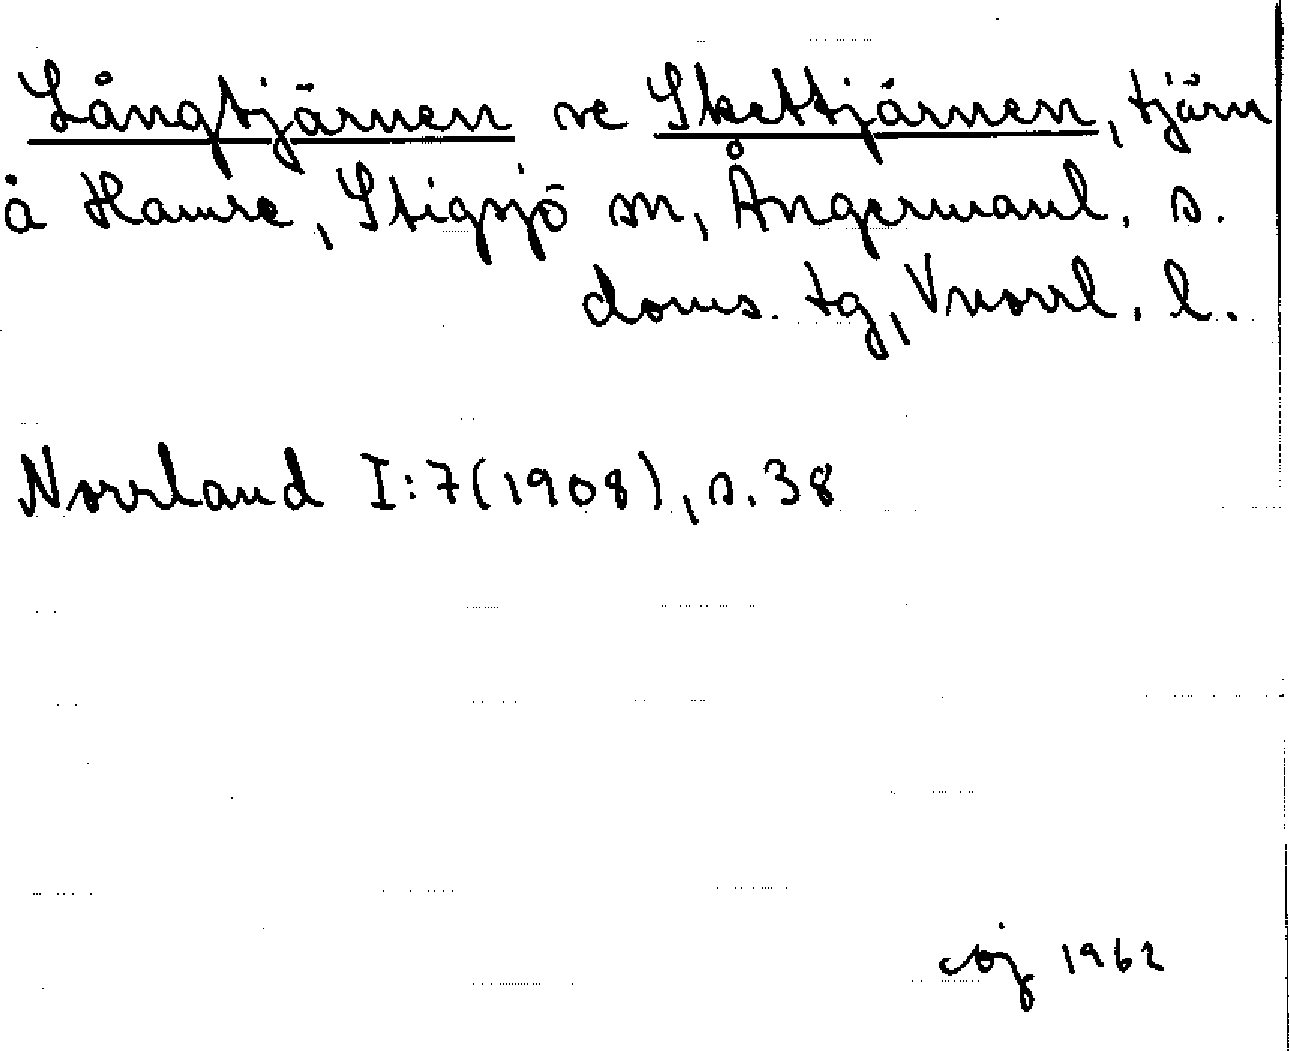 Långtjärnen se Skettjärnen, tjärn
å Hamre, Stigsjö sn, Ångermanl. s.
doms. tg, Vnorrl. l.
Norrland I:7(1908), s.38
1962